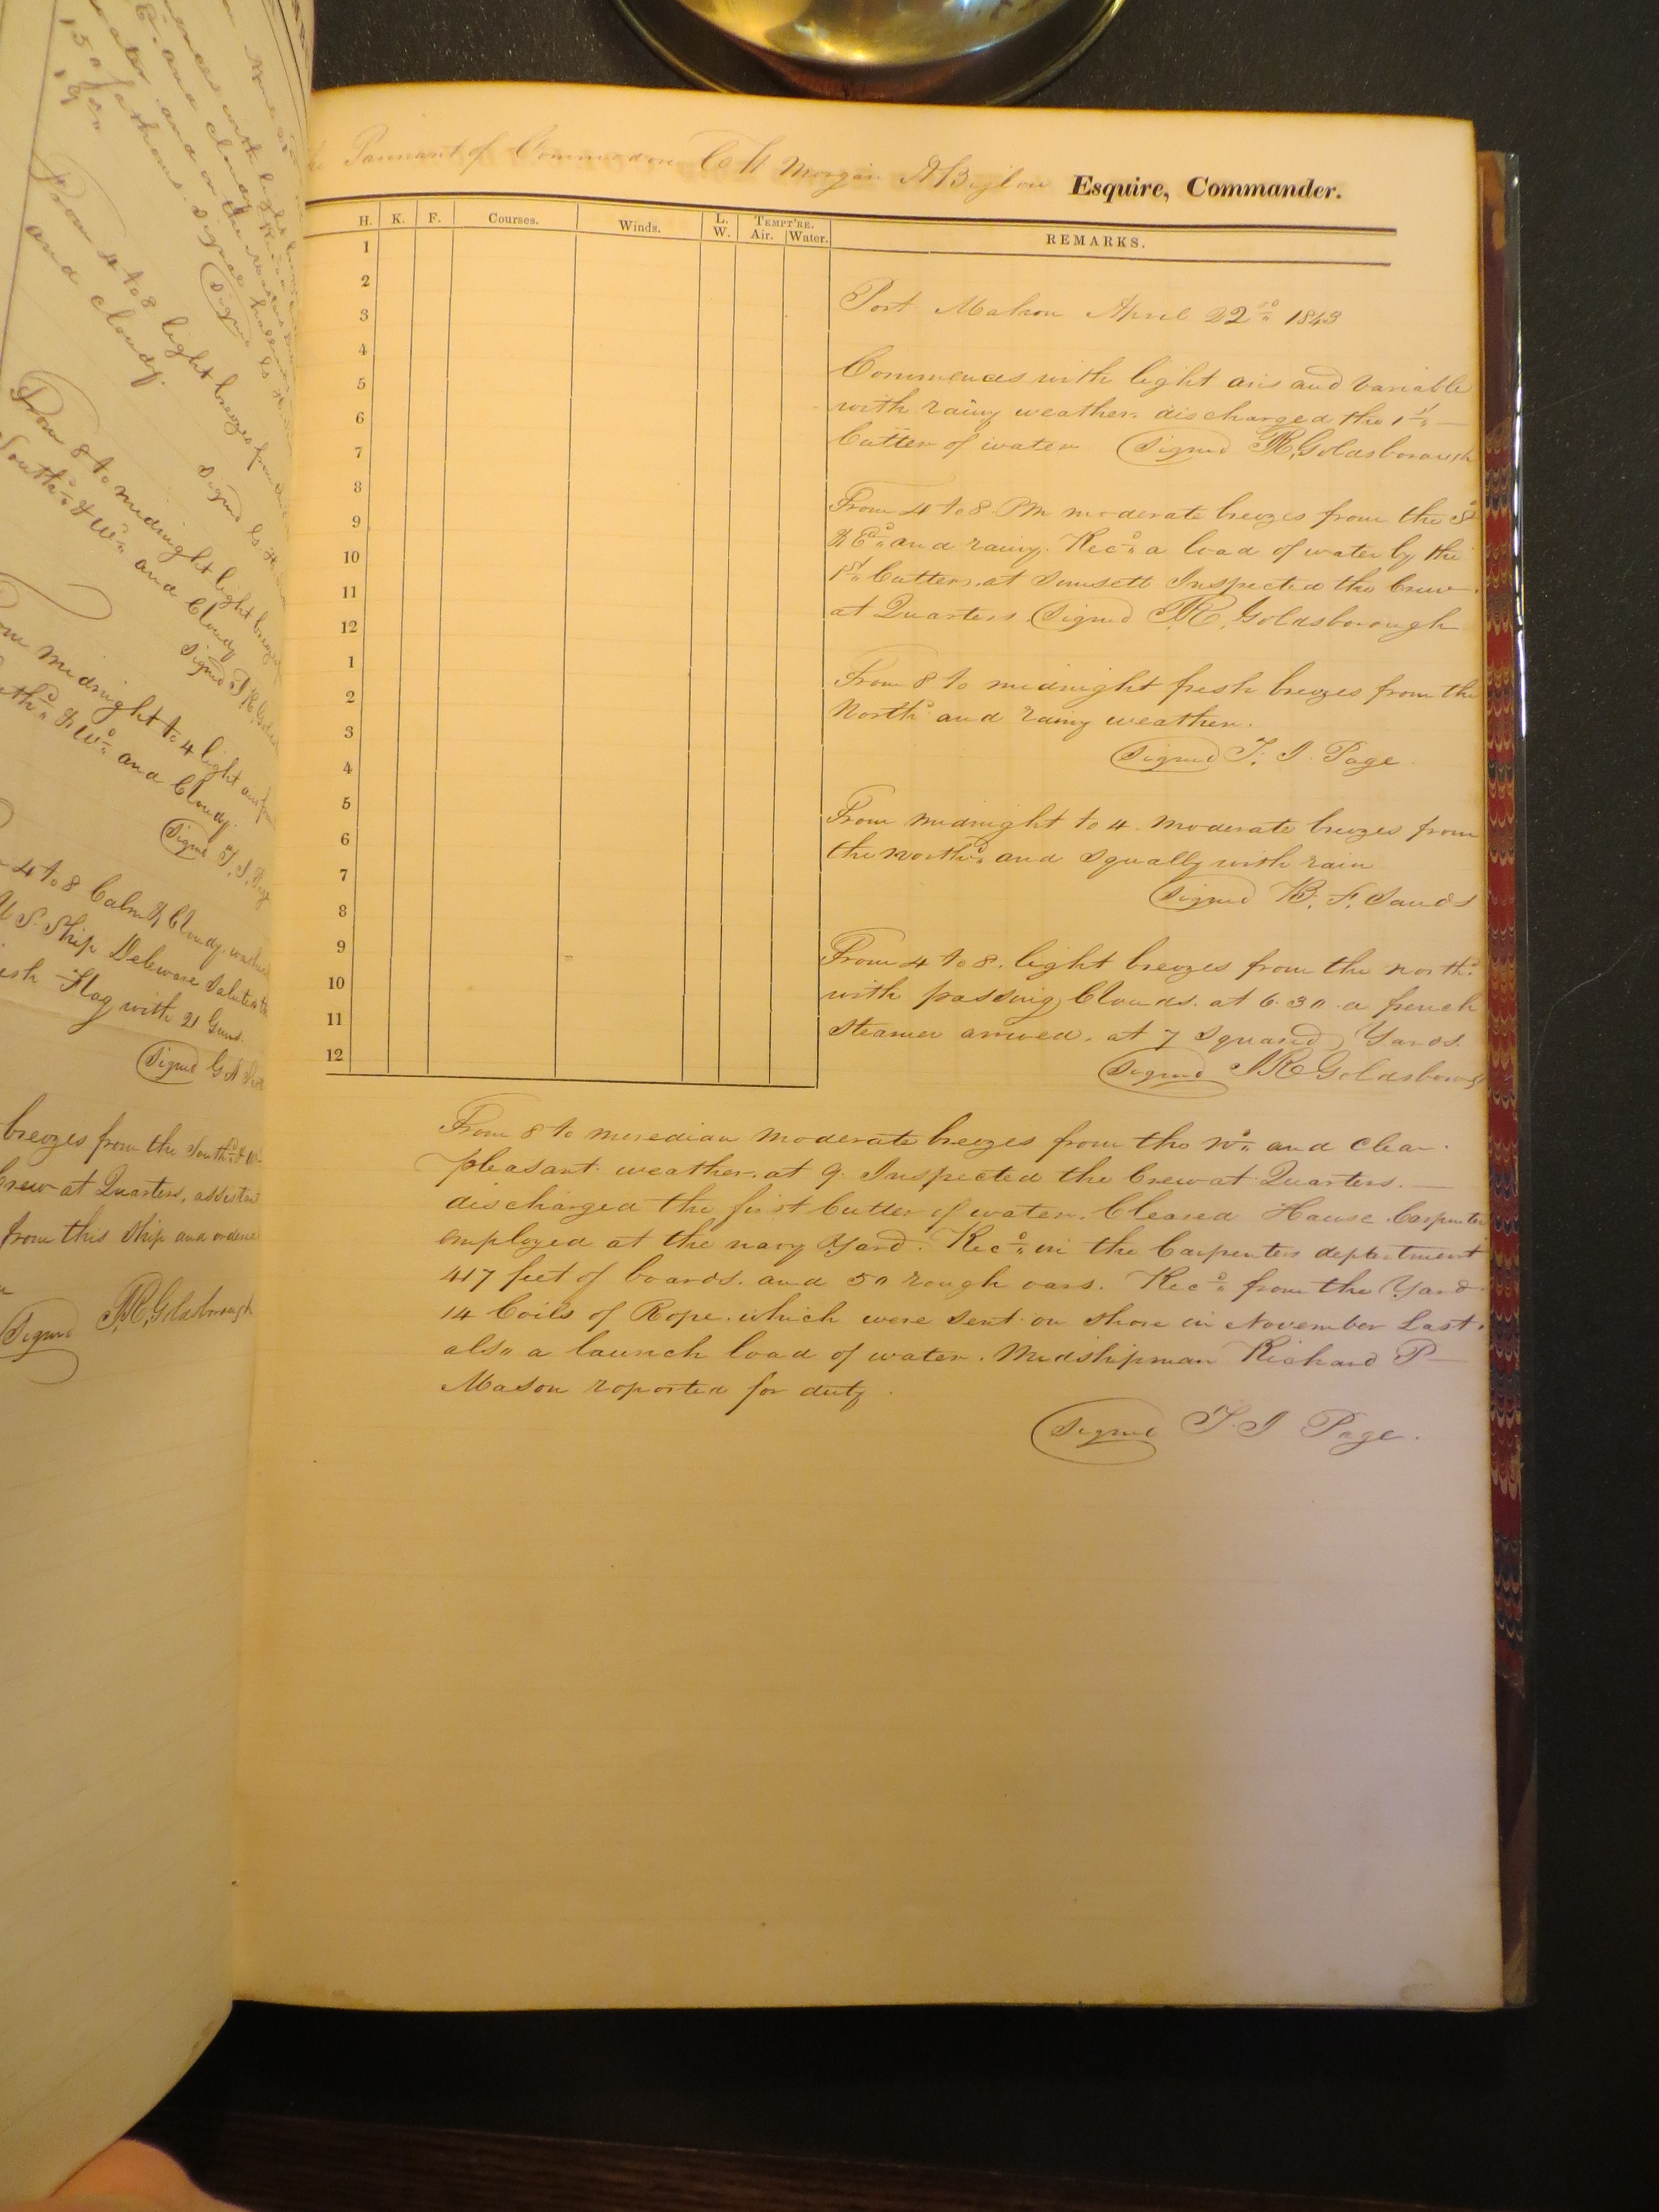 None
15 a fathoms. Signal
From 4 to 8 light breezes from
and cloudy.
From 8 to midnight light breezes
South^d & W^d and Cloudy
Signed
midnight to 4 light airs from
& W^d and Cloudy.
Signed T. J. Page
4 to 8 Calm & Cloudy
U S. Ship Deleware Saluted the
Flag with 21 Guns.
Signed
breezes from the South^d & W
Crew at Quarters,
from this Ship and
Signed J R, Goldsborough
Pannant of Commodore C W Morgan A Biglow Esquire, Commander.
H. K. F. Courses. Winds. L. W. TEMPT'RE. Air. Water. REMARKS.
1
2
3
4
5
6
7
8
9
10
11
12
1
2
3
4
5
6
7
8
9
10
11
12
Port Mahon April 22^nd 1843
Commences with light airs and variable
with rainy weather. discharged the 1^st
Cutter of water Signed J R, Goldsborough
From 4 to 8 PM moderate breezes from the S^d
& E^d and rainy. Rec^d a load of water by the
1^st Cutter. at Sunsett Inspected the Crew
at Quarters Signed J R, Goldsborough
From 8 to midnight fresh breezes from the
North^d and rainy weather.
Signed T. J. Page
From midnight to 4. moderate breezes from
the North^d and Squally with rain
Signed B. F. Sands
From 4 to 8. light breezes from the north^d
with passing Clouds. at 6.30 a french
Steamer arrived. at 7 Squared Yards.
Signed J R Goldsborough
From 8 to meredian moderate breezes from the N^d and Clear
pleasant weather. at 9. Inspected the Crew at Quarters.
discharged the first Cutter of water. Cleared Hawse. Carpenter
employed at the navy Yard. Rec^d in the Carpenters department
417 feet of boards. and 50 rough oars. Rec^d from the Yard
14 Coils of Rope. which were Sent on Shore in November Last.
also a launch load of water. Midshipman Richard P
Mason reported for duty
Signed T. J Page.